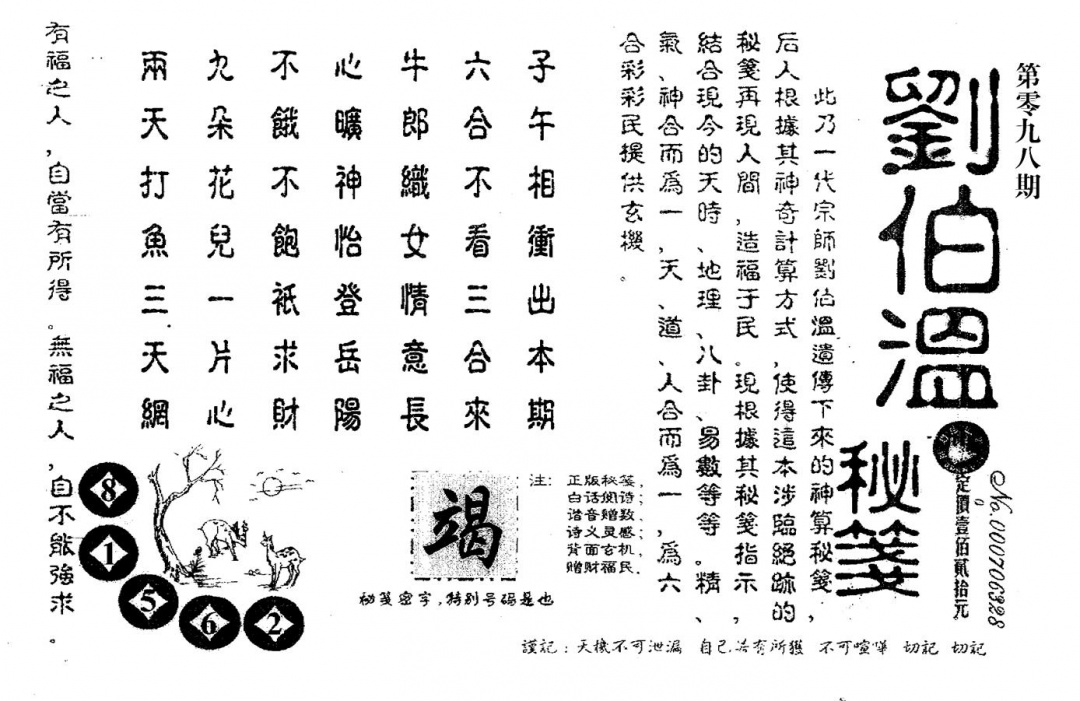 第零九八期
劉伯溫
秘箋
定價壹佰貳拾元
No.000706328
此乃一代宗師劉伯溫遺傳下來的神算秘箋,
后人根據其神奇計算方式,使得這本涉臨絕跡的
秘箋再現人間,造福于民。現根據其秘箋指示,
結合現今的天時、地理、八卦、易數等等。精、
氣、神合而爲一,天、道、人合而爲一,爲六
合彩彩民提供玄機。
子午相衝出本期
六合不看三合來
牛郎織女情意長
心曠神怡登岳陽
不餓不飽祇求財
九朵花兒一片心
兩天打魚三天網
有福之人,自當有所得。無福之人,自不能強求。
注:
正版秘笺,
白话阅诗;
谐音赠数,
诗义灵感;
背面玄机,
赠财福民.
竭
秘笺密字,特别号码是也
8
1
5
6
2
謹記:天機不可泄漏 自己若有所獲 不可喧嘩 切記 切記